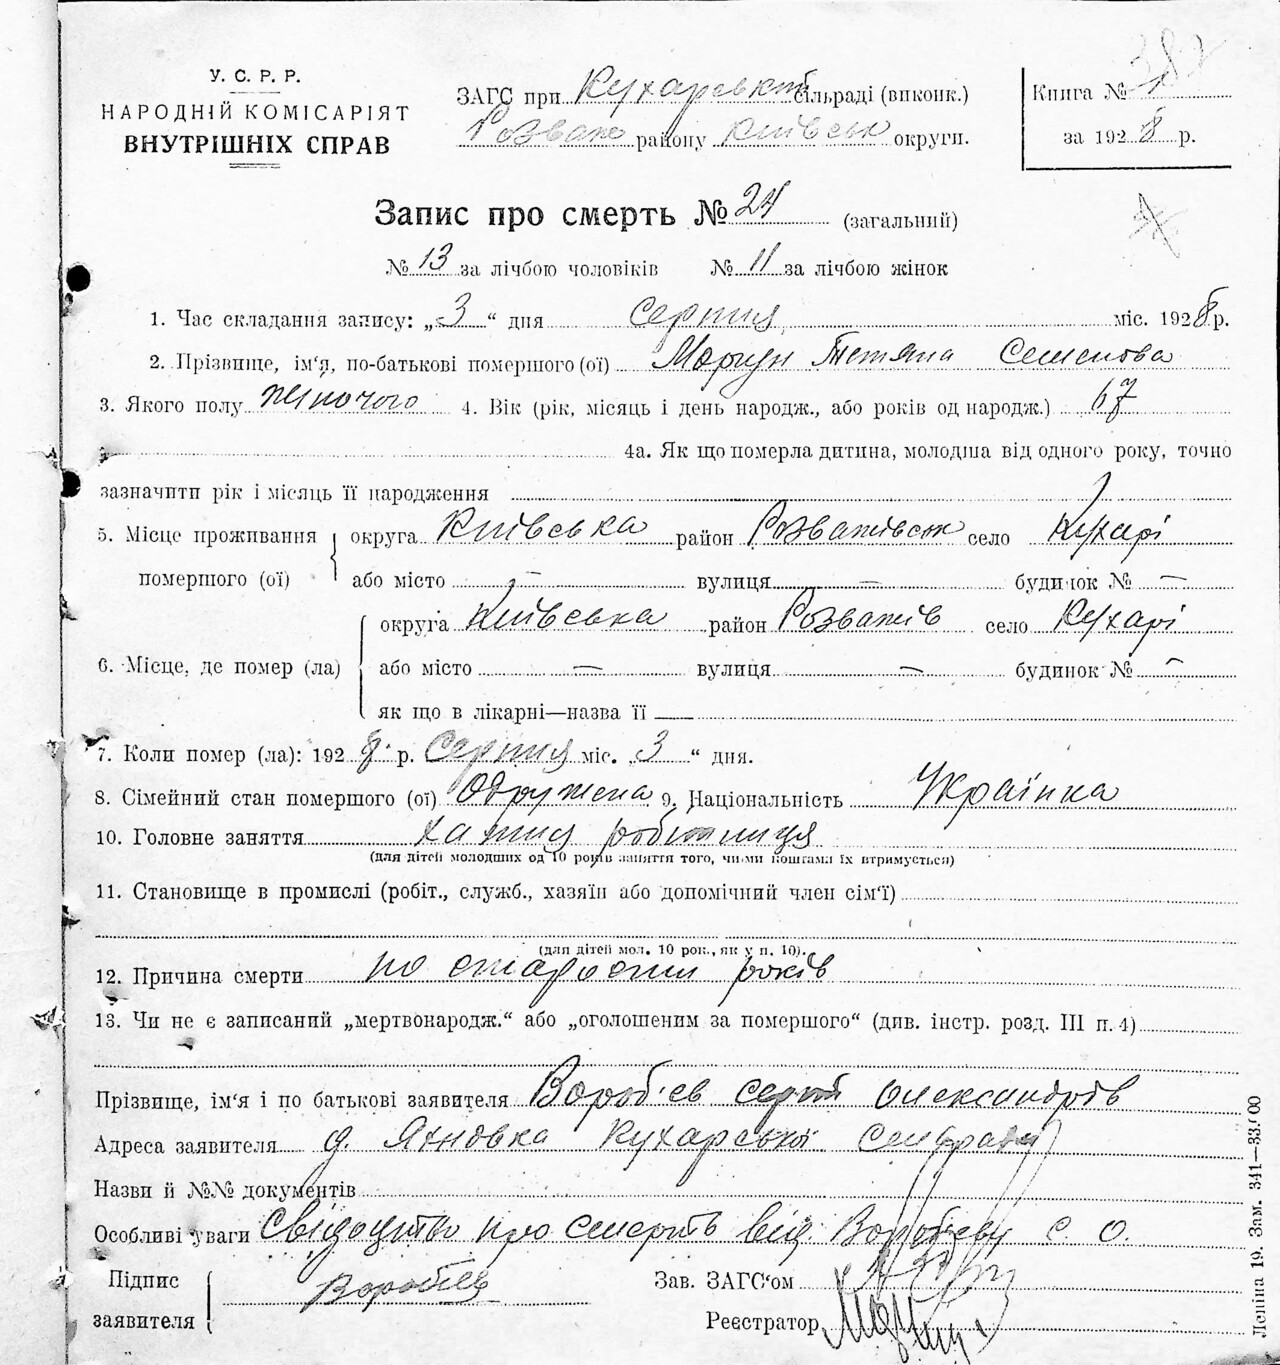 382
У. С. Р. Р.
НАРОДНІЙ КОМІСАРІЯТ
ВНУТРІШНІХ СПРАВ
ЗАГС при Кухарській сільраді (виконк.)
Розваж району Київськ округи.
Книга № 1
за 1928 р.
Запис про смерть № 24 (загальний)
№ 13 за лічбою чоловіків № 11 за лічбою жінок
1. Час складання запису: „3“ дня серпня міс. 1928 р.
2. Прізвище, ім‘я, по-батькові помершого (ої) Моргун Тетяна Семенова
3. Якого полу жіночого 4. Вік (рік, місяць і день народж., або років од народж.) 67
4а. Як що померла дитина, молодша від одного року, точно
зазначити рік і місяць її народження
5. Місце проживання помершого (ої) округа Київська район Розважівськ село Кухарі
або місто — вулиця — будинок № —
6. Місце, де помер (ла) округа Київська район Розважів село Кухарі
або місто — вулиця — будинок № —
як що в лікарні—назва її —
7. Коли помер (ла): 1928 р. Серпня міс. 3 “ дня.
8. Сімейний стан помершого (ої) Одружена 9. Національність Українка
10. Головне заняття хатня робітниця
(для дітей молодших од 10 років заняття того, чиїми коштами їх втримується)
11. Становище в промислі (робіт., служб., хазяїн або допомічний член сім‘ї)
(для дітей мол. 10 рок., як у п. 10).
12. Причина смерти по старости років
13. Чи не є записаний „мертвонародж.“ або „оголошеним за помершого“ (див. інстр. розд. III п. 4)
Прізвище, ім‘я і по батькові заявителя Вороб'єв Сергій Олександрів
Адреса заявителя д. Яхновка Кухарської Сельради
Назви й №№ документів
Особливі уваги Свідоцтво про смерть від. Воробйеву С. О.
Підпис заявителя Воробйев
Зав. ЗАГС‘ом
Реєстратор
Леніна 19. Зам. 341—33.000